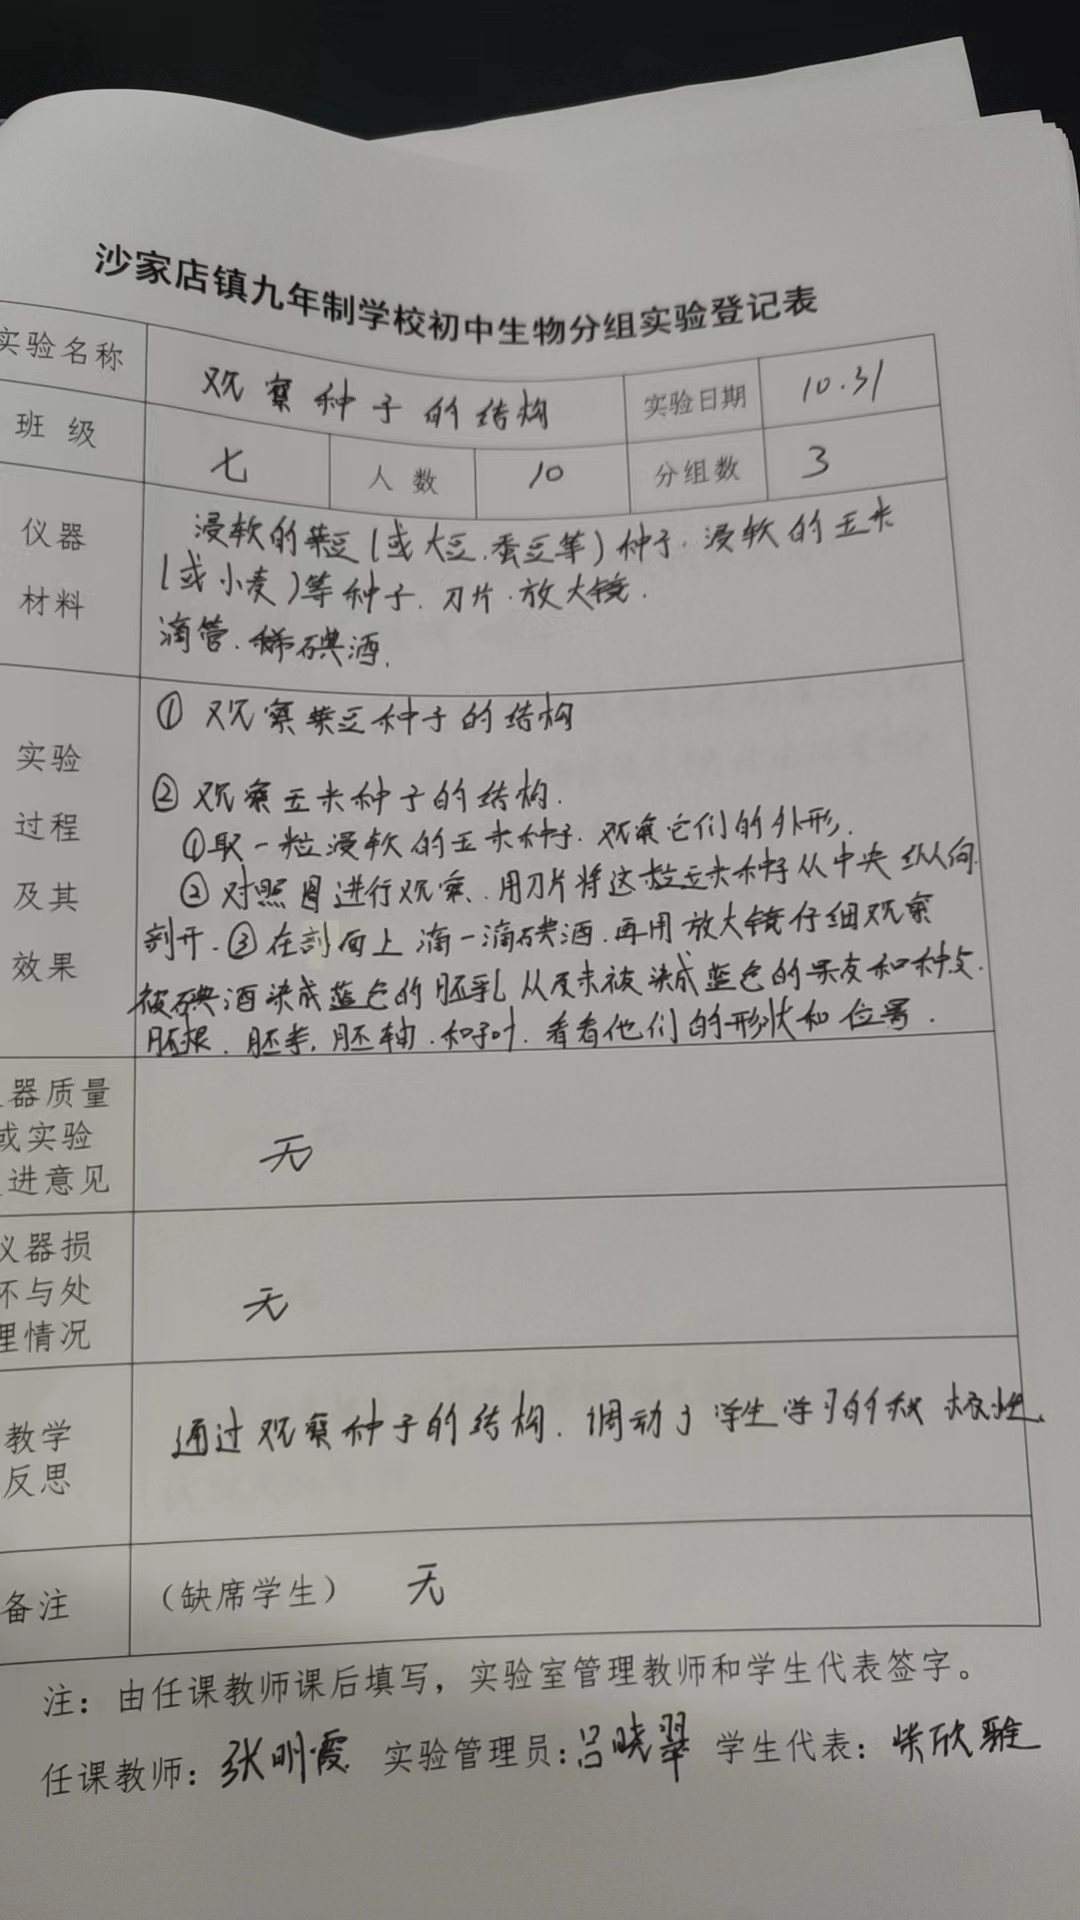 沙家店镇九年制学校初中生物分组实验登记表
实验名称 观察种子的结构 实验日期 10.31
班 级 七 人 数 10 分组数 3
仪器
材料
浸软的菜豆(或大豆、蚕豆等)种子、浸软的玉米
(或小麦)等种子、刀片、放大镜、
滴管、稀碘酒、
实验
过程
及其
效果
① 观察菜豆种子的结构
② 观察玉米种子的结构.
①取一粒浸软的玉米种子、观察它们的外形.
② 对照图进行观察、用刀片将这粒玉米种子从中央纵向
剖开.③在剖面上滴一滴碘酒、再用放大镜仔细观察
被碘酒染成蓝色的胚乳从及未被染成蓝色的果皮和种皮、
胚根、胚芽、胚轴、和子叶、看看他们的形状和位置.
器质量
或实验
进意见
无
仪器损
坏与处
理情况
无
教学
反思
通过观察种子的结构、调动了学生学习的积极性.
备注 (缺席学生) 无
注：由任课教师课后填写，实验室管理教师和学生代表签字。
任课教师：张明霞 实验管理员：吕晓翠 学生代表：柴欣雅